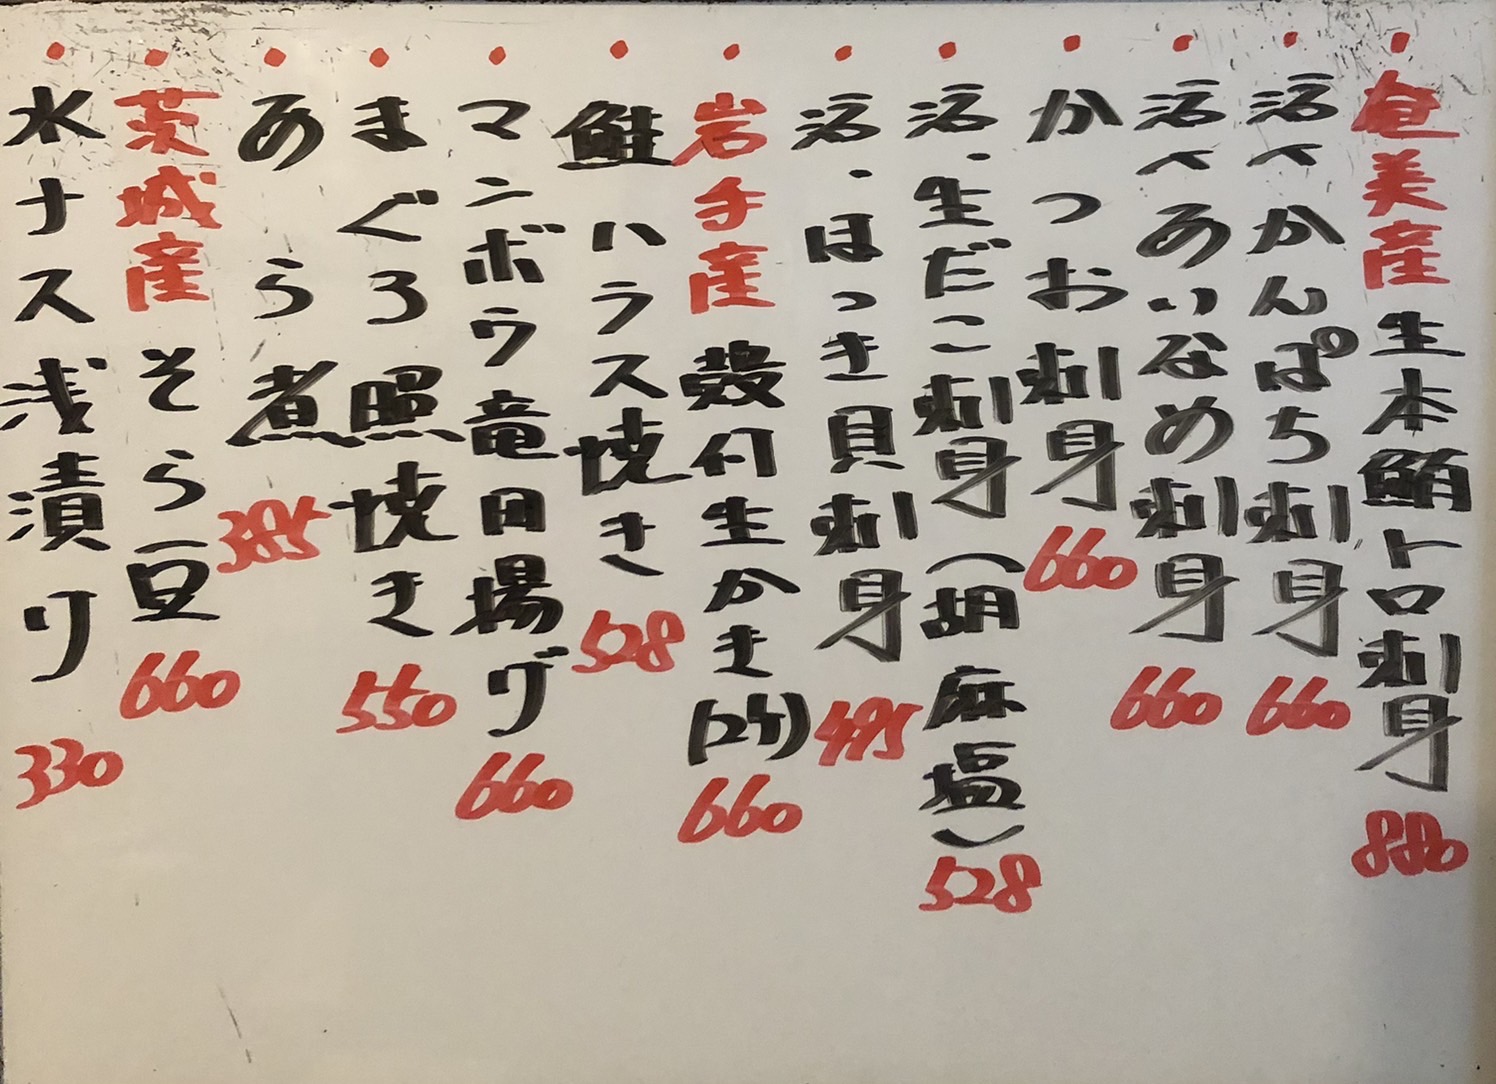 ・奄美産生本鮪トロ刺身 880
・活〆かんぱち刺身 660
・活〆あいなめ刺身 660
・かつお刺身 660
・活・生だこ刺身(胡麻塩) 528
・活・ほっき貝刺身 495
・岩手産 殻付生かき(2ケ) 660
・鮭ハラス焼き 528
・マンボウ竜田揚げ 660
・まぐろ照焼き 550
・あら煮 385
・茨城産そら豆 660
・水ナス浅漬り 330